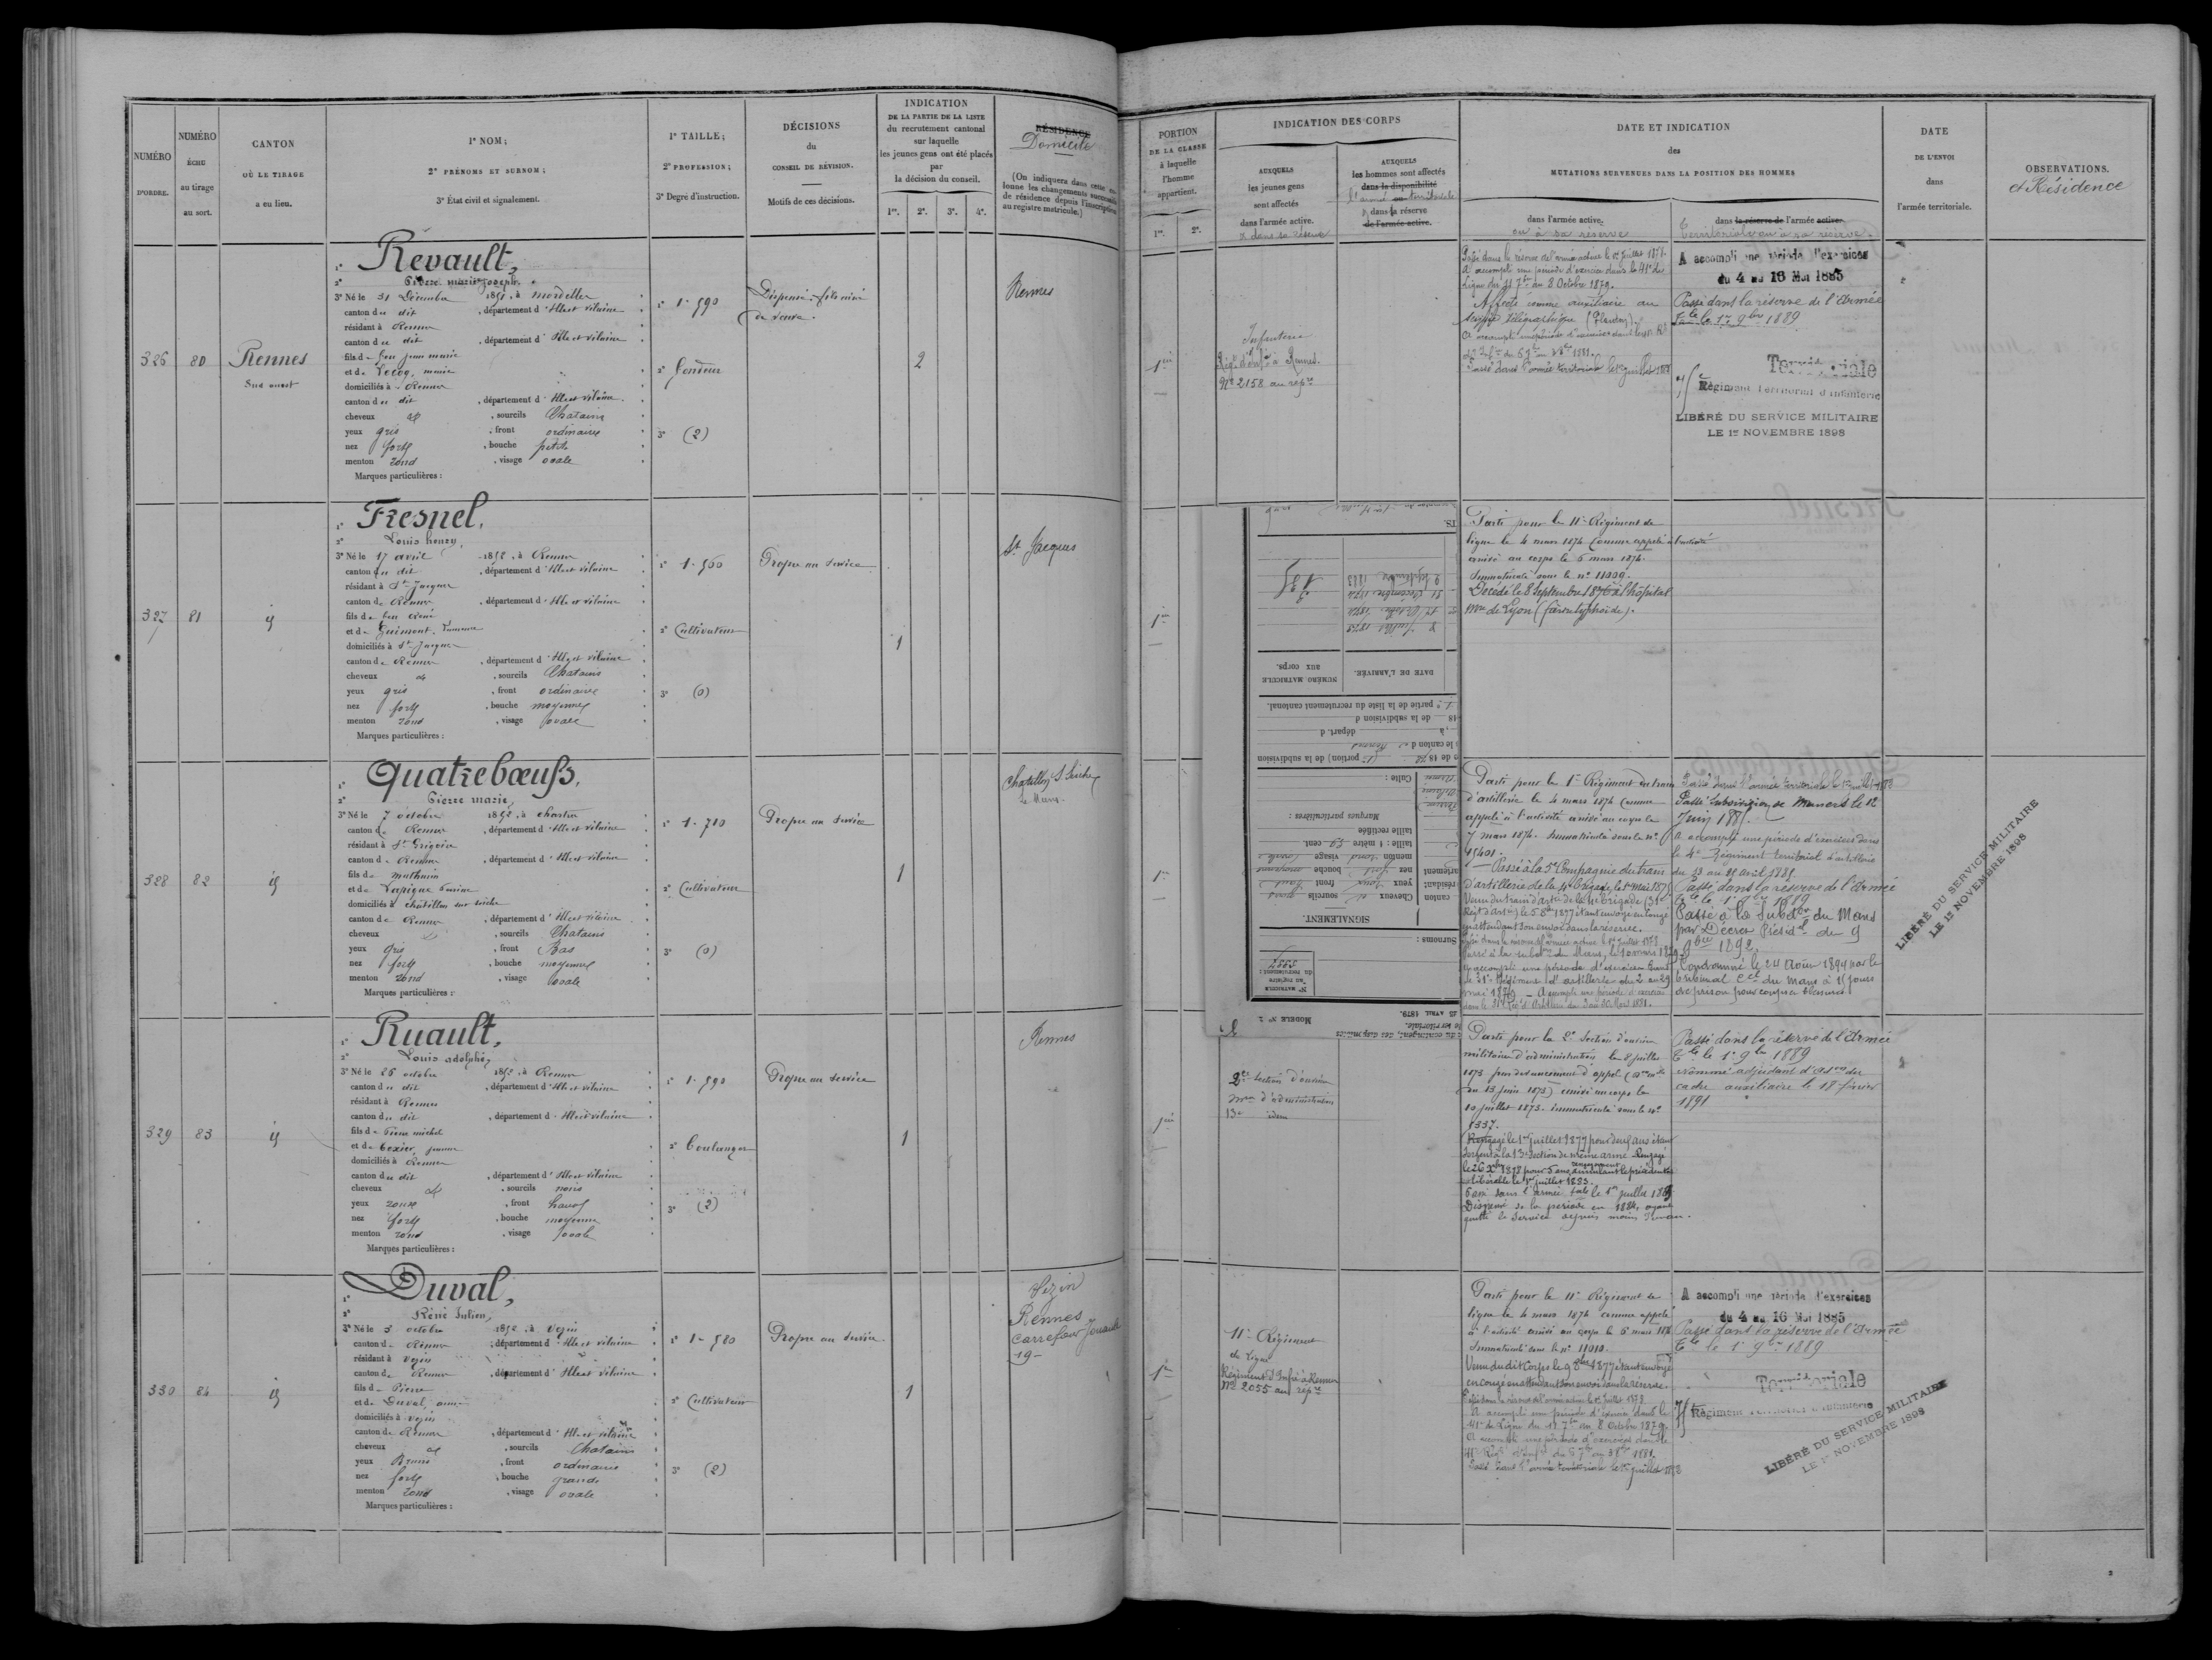 NUMÉRO
D'ORDRE.
NUMÉRO
ÉCHU
au tirage
au sort.
CANTON
OÙ LE TIRAGE
a eu lieu.
1º NOM;
2º PRÉNOMS ET SURNOM;
3º État civil et signalement.
1º TAILLE;
2º PROFESSION;
3º Degré d'instruction.
DÉCISIONS
du
CONSEIL DE RÉVISION.
Motifs de ces décisions.
INDICATION
DE LA PARTIE DE LA LISTE
du recrutement cantonal
sur laquelle
les jeunes gens ont été placés
par
la décision du conseil.
1re. 2e. 3e. 4e.
RÉSIDENCE
Domicile
(On indiquera dans cette colonne les changements successifs
de résidence depuis l'inscription
au registre matricule.)
326
80
Rennes
Sud ouest
1º Révault,
2º Pierre marie joseph
3º Né le 31 Décembre 1852, à mordelles
canton du dit, département d'Ille et vilaine
résidant à Rennes
canton du dit, département d'Ille et vilaine
fils de feu jean marie
et de Lecoq, marie
domiciliés à Rennes
canton du dit, département d'Ille et vilaine
cheveux et, sourcils Chatains
yeux gris, front ordinaire
nez fort, bouche petite
menton rond, visage ovale
Marques particulières :
1º 1.590
2º Fondeur
3º (2)
Dispensé : fils ainé
de veuve.
2
Rennes
327
81
id
1º Fresnel,
2º Louis henry,
3º Né le 17 avril 1852, à Rennes
canton du dit, département d'Ille et vilaine
résidant à St Jacques
canton de Rennes, département d'Ille et vilaine
fils de feu René
et de Guimont,
domiciliés à St Jacques
canton de Rennes, département d'Ille et vilaine
cheveux et, sourcils Chatains
yeux gris, front ordinaire
nez fort, bouche moyenne
menton rond, visage ovale
Marques particulières :
1º 1.560
2º Cultivateur
3º (0)
Propre au service
1
St Jacques
328
82
id
1º Quatrebœufs,
2º Pierre marie,
3º Né le 7 octobre 1852, à chartres
canton de Rennes, département d'Ille et vilaine
résidant à St Grégoire
canton de Rennes, département d'Ille et vilaine
fils de mathurin
et de Lapique
domiciliés à châtillon sur seiche
canton de Rennes, département d'Ille et vilaine
cheveux, sourcils Chatains
yeux gris, front Bas
nez fort, bouche moyenne
menton rond, visage ovale
Marques particulières :
1º 1.710
2º Cultivateur
3º (0)
Propre au service
1
Chatillon S. Seiche
Le Mans.
329
83
id
1º Ruault,
2º Louis adolphe,
3º Né le 26 octobre 1852, à Rennes
canton du dit, département d'Ille et vilaine
résidant à Rennes
canton du dit, département d'Ille et vilaine
fils de Pierre michel
et de Texier, jeanne
domiciliés à Rennes
canton du dit, département d'Ille et vilaine
cheveux et, sourcils noirs
yeux roux, front haut
nez fort, bouche moyenne
menton rond, visage ovale
Marques particulières :
1º 1.590
2º Boulanger
3º (2)
Propre au service
1
Rennes
330
84
id
1º Duval,
2º Réné Julien,
3º Né le 5 octobre 1852, à Vezin
canton de Rennes, département d'Ille et vilaine
résidant à Vezin
canton de Rennes, département d'Ille et vilaine
fils de Pierre
et de Duval, anne
domiciliés à Vezin
canton de Rennes, département d'Ille et vilaine
cheveux et, sourcils Chatains
yeux Bruns, front ordinaire
nez fort, bouche grande
menton rond, visage ovale
Marques particulières :
1º 1.580
2º Cultivateur
3º (2)
Propre au service
1
Vezin
Rennes
Carrefour Jouault
19
PORTION
DE LA CLASSE
à laquelle
l'homme
appartient.
1re. 2e.
INDICATION DES CORPS
AUXQUELS
les jeunes gens
sont affectés
dans l'armée active.
et dans sa réserve
AUXQUELS
les hommes sont affectés
dans la disponibilité
l'armée territoriale
et dans sa réserve
de l'armée active.
DATE ET INDICATION
des
MUTATIONS SURVENUES DANS LA POSITION DES HOMMES
dans l'armée active.
ou à sa réserve
dans la réserve de l'armée active.
Territoriale ou à sa réserve.
DATE
DE L'ENVOI
dans
l'armée territoriale.
OBSERVATIONS.
et Résidence
1ère
Infanterie
Régt d'Infie à Rennes.
Nº 2158 au repre
Passé dans la réserve de l'armée active le 1er juillet 1878.
A accompli une période d'exercice dans le 41e de
Ligne du 11 7bre au 8 Octobre 1879.
Affecté comme auxiliaire au
service télégraphique
Passé dans l'armée territoriale le 1er juillet 1883
A accompli une période d'exercices
du 4 au 16 Mai 1885
Passé dans la réserve de l'Armée
Tale le 1er 9bre 1889
Territoriale
75 Régiment Territorial d'Infanterie
LIBÉRÉ DU SERVICE MILITAIRE
LE 1er NOVEMBRE 1898
1ère
Parti pour le 11e Régiment de
ligne le 4 mars 1874 comme appelé à l'activité
arrivé au corps le 6 mars 1874.
Immatriculé sous le nº 11009.
Décédé le 8 Septembre 1876 à l'hôpital
mre de Lyon (fièvre typhoïde).
135
2 Septembre 1883
31 Décembre 1874
8 Juillet 1873
NUMÉRO MATRICULE
aux corps.
DATE DE L'ARRIVÉE.
1e partie de la liste du recrutement cantonal.
de la subdivision d
à départ. d
le canton de Rennes
de 1872 (1e portion) de la subdivision
Culte :
Marques particulières :
taille rectifiée
taille : 1 mètre 59 cent.
menton rond visage ovale
nez fort bouche moyenne
yeux roux front haut
Cheveux et sourcils noirs
canton
résidant
SIGNALEMENT.
Surnoms :
Nº MATRICULE
au registre
du recrutement :
MODÈLE Nº 2
25 AVRIL 1879.
1re
Parti pour le 1er Régiment du train
d'artillerie le 4 mars 1874 comme
appelé à l'activité arrivé au corps le
7 mars 1874. Immatriculé sous le nº
15401.
Passé à la 5e Compagnie du train
d'artillerie de la 4e brigade le 1er Mai 1875
Venu du train d'artie de la 4e brigade (31e
Régt d'artie) le 5 8bre 1877 étant envoyé en congé
en attendant son envoi dans la réserve.
Passé dans la réserve de l'armée active le 1er juillet 1878
Passé à la subdon du Mans, le 10 mars 1879
A accompli une période d'exercices dans
le 31e Régiment d'artillerie du 2 au 29
mai 1879 - A accompli une période d'exercice
dans le 31e Régt d'Artillerie du 3 au 30 Mars 1881.
Passé dans l'armée territoriale le 1er juillet 1883
Passé subdivision de Mamers le 12
Juin 1885.
A accompli une période d'exercices dans
le 4e Régiment territorial d'artillerie
du 13 au 25 avril 1885.
Passé dans la réserve de l'Armée
Tale le 1er 9bre 1889
Passé à la Subdon du Mans
par Décret Présidel du 9
9bre 1892
Condamné le 24 Août 1894 par le
tribunal Cel du Mans à 15 jours
de prison pour coups et blessures
LIBÉRÉ DU SERVICE MILITAIRE
LE 1er NOVEMBRE 1898
1ère
2e Section d'ouvriers
mres d'administration
13e idem
Parti pour la 2e Section d'ouvriers
militaires d'administration le 8 juillet
1873 par devancement d'appel
du 13 juin 1873) arrivé au corps le
10 juillet 1873. immatriculé sous le nº
1337.
Rengagé le 1er juillet 1877 pour deux ans étant
Sergent à la 13e Section de même arme. Rengagé
le 26 Xbre 1878 pour 5 ans annulant le précédent
rengagement
libérable le 1er juillet 1883.
Passé dans l'armée tale le 1er juillet 1883
Dispensé de la période en 1884, ayant
quitté le service depuis moins d'un an.
Passé dans la réserve de l'Armée
Tale le 1er 9bre 1889
Nommé adjudant d'Adon du
cadre auxiliaire le 18 février
1891
1re
11e Régiment
de Ligne
Régiment d'Infie à Rennes
Nº 2055 au repre
Parti pour le 11e Régiment de
ligne le 4 mars 1874 comme appelé
à l'activité arrivé au corps le 6 mars 1874
Immatriculé sous le nº 11010.
Venu du dit Corps le 9 8bre 1877 étant envoyé
en congé en attendant son envoi dans la réserve.
Passé dans la réserve de l'armée active le 1er juillet 1878
A accompli une période d'exercice dans le
41e de Ligne du 11 7bre au 8 Octobre 1879.
A accompli une période d'exercices dans le
Passé dans l'armée territoriale le 1er juillet 1883
A accompli une période d'exercices
du 4 au 16 Mai 1885
Passé dans la réserve de l'Armée
Tale le 1er 9bre 1889
Territoriale
75 Régiment Territorial d'Infanterie
LIBÉRÉ DU SERVICE MILITAIRE
LE 1er NOVEMBRE 1898